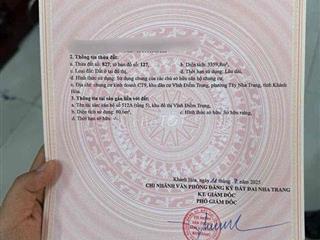 2. Thông tin thửa đất:
a. Thửa đất số: 827, tờ bản đồ số: 127, b. Diện tích: 5359,8m².
c. Loại đất: Đất ở tại đô thị, d. Thời hạn sử dụng: Lâu dài,
đ. Hình thức sử dụng: Sử dụng chung của các chủ sở hữu căn hộ chung cư,
e. Địa chỉ: chung cư kinh doanh CT9, khu dân cư Vĩnh Điềm Trung, phường Tây Nha Trang, tỉnh Khánh
Hòa.
3. Thông tin tài sản gắn liền với đất:
a. Tên tài sản: căn hộ số 512A (tầng 5), khu đô thị Vĩnh Điềm Trung,
b. Diện tích sử dụng: 60,6m², c. Hình thức sở hữu: Sở hữu riêng,
d. Thời hạn sở hữu: -/-
Khánh Hòa, ngày tháng 2025
CHI NHÁNH VĂN PHÒNG ĐĂNG KÝ ĐẤT ĐAI NHA TRANG
KT. GIÁM ĐỐC
PHÓ GIÁM ĐỐC